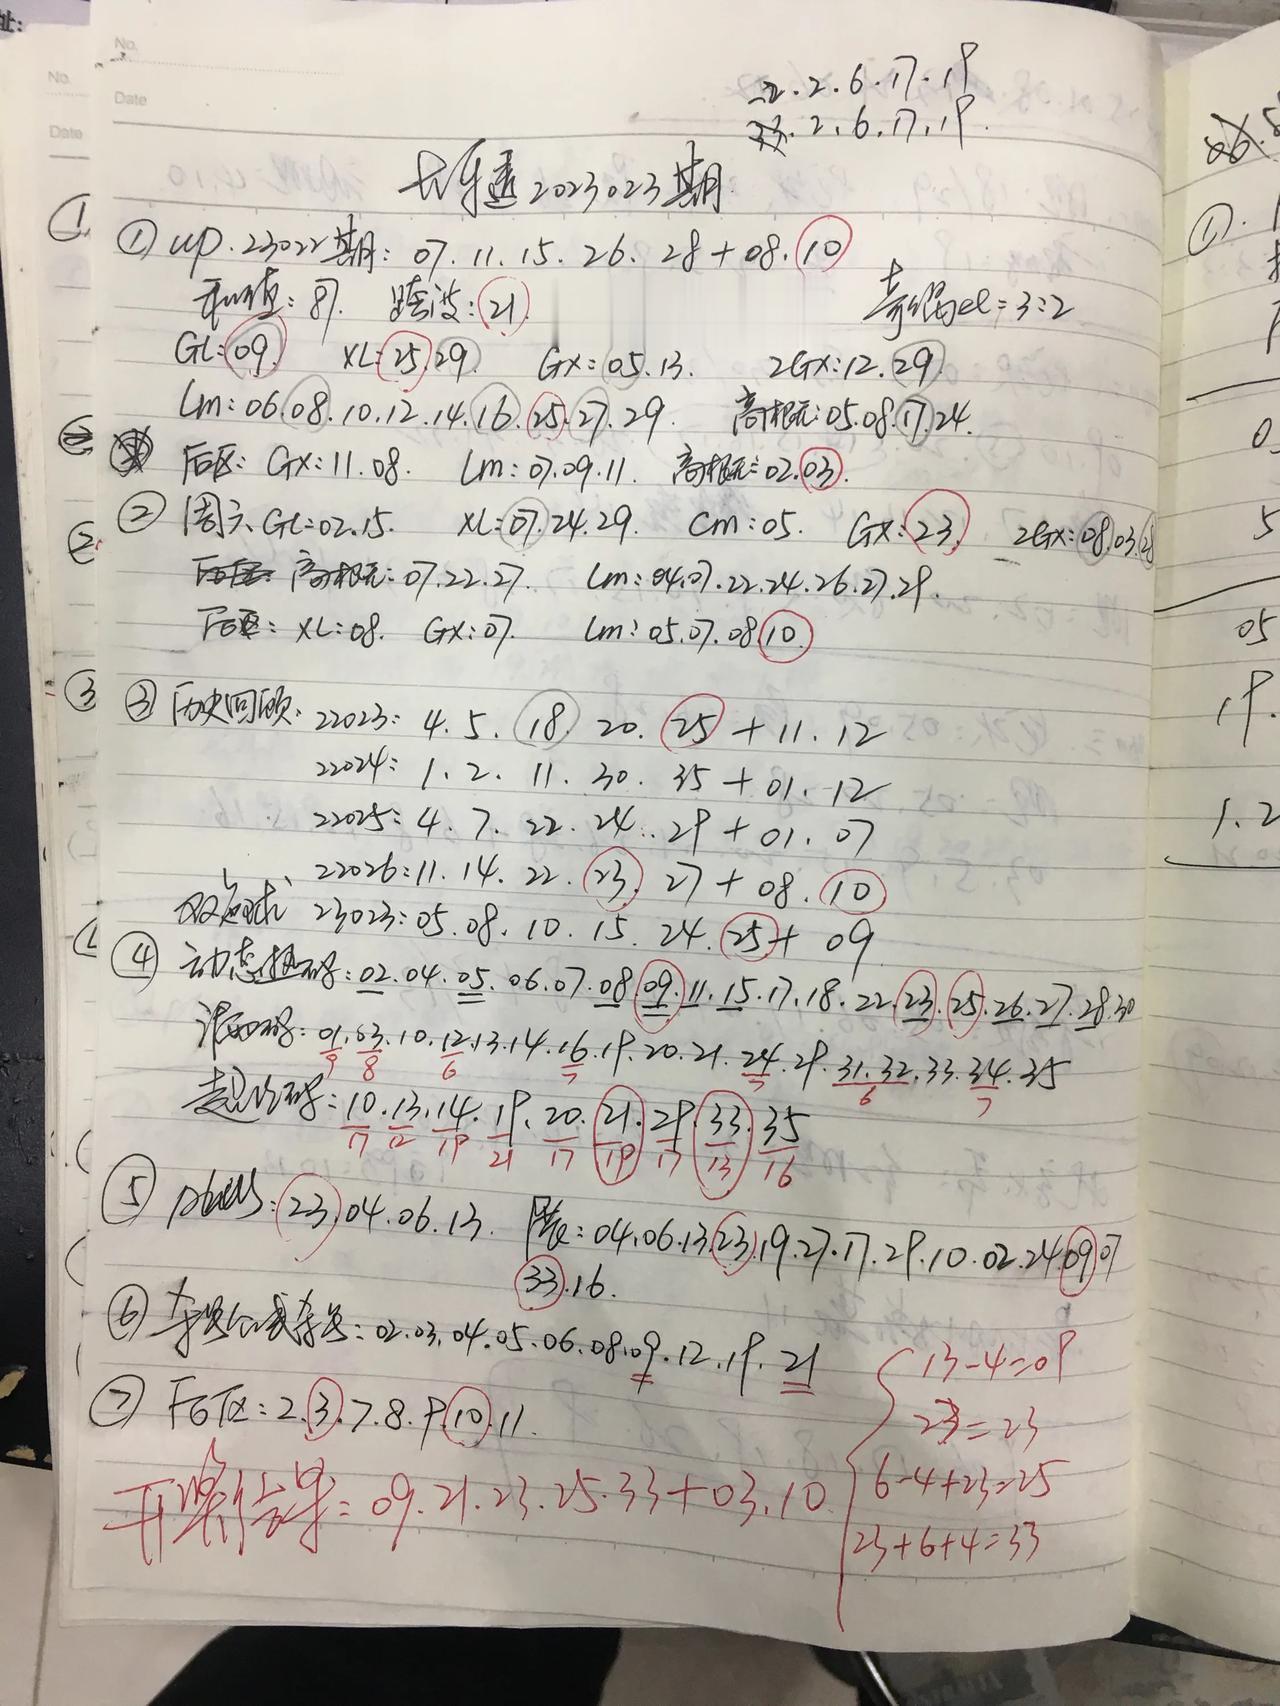 No.
Date
No.
Date
22.2.6.17.19
33.2.6.17.19.
大乐透2023023期
① up.23022期: 07.11.15.26.28+08.10
和值:87. 跨度:21 奇偶比=3:2
GL:09. XL:25.29 GX:05.13. 2GX:12.29.
Lm:06.08.10.12.14.16.25.27.29. 高概元:05.08.17.24.
后区: GX:11.08. Lm:07.09.11. 高概元:02.03.
② 周六.GL:02.15. XL:07.24.29. Cm:05. GX:23. 2GX:08.03.28
高概元:07.22.27. Lm:04.07.22.24.26.27.29.
后区: XL:08. GX:07. Lm:05.07.08.10.
③ 历史回顾: 22023: 4.5.18.20.25+11.12
22024: 1.2.11.30.35+01.12
22025: 4.7.22.24.29+01.07
22026: 11.14.22.23.27+08.10
双色球 23023: 05.08.10.15.24.25+09
④ 动态热码: 02.04.05.06.07.08.09.11.15.17.18.22.23.25.26.27.28.30
温码: 01.03.10.12.13.14.16.19.20.21.24.29.31.32.33.34.35
9 8 6 7 7 6 7
超冷码: 10.13.14.19.20.21.29.33.35
17 12 19 21 17 19 17 13 16
⑤ 23.04.06.13. 04.06.13.23.19.27.17.29.10.02.24.09.07
33.16.
⑥ 02.03.04.05.06.08.09.12.19.21
⑦ 后区: 2.3.7.8.9.10.11.
开奖结果: 09.21.23.25.33+03.10
13-4=09
23=23
6-4+23=25
23+6+4=33